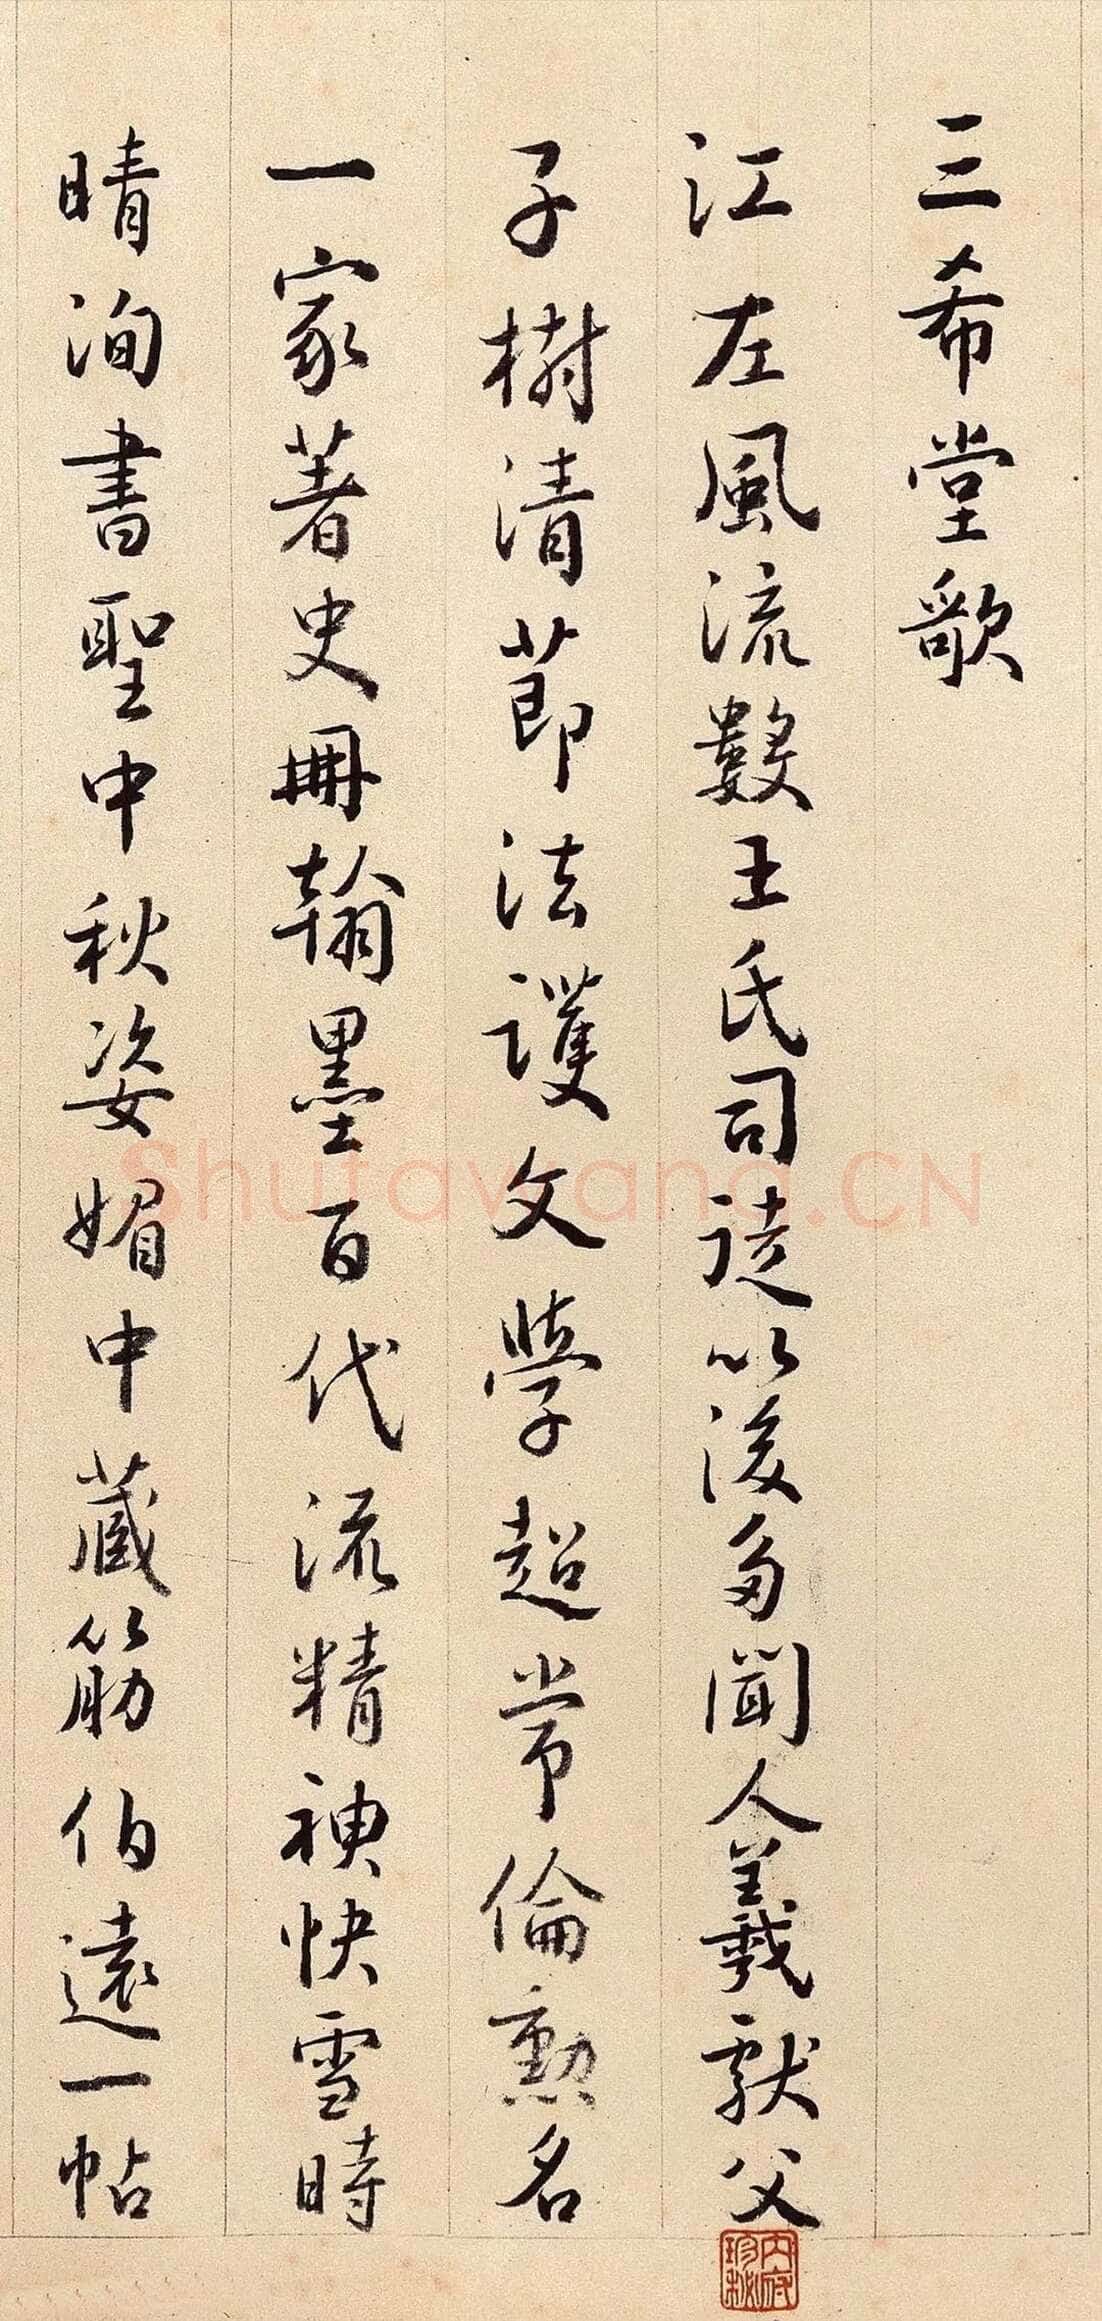 三希堂歌
江左風流數王氏司徒以後多聞人羲獻父
子樹清節法護文學超常倫勲名
一家著史冊翰墨百代流精神快雪時
晴洵書聖中秋姿媚中藏筋伯遠一帖
内府
珍秘